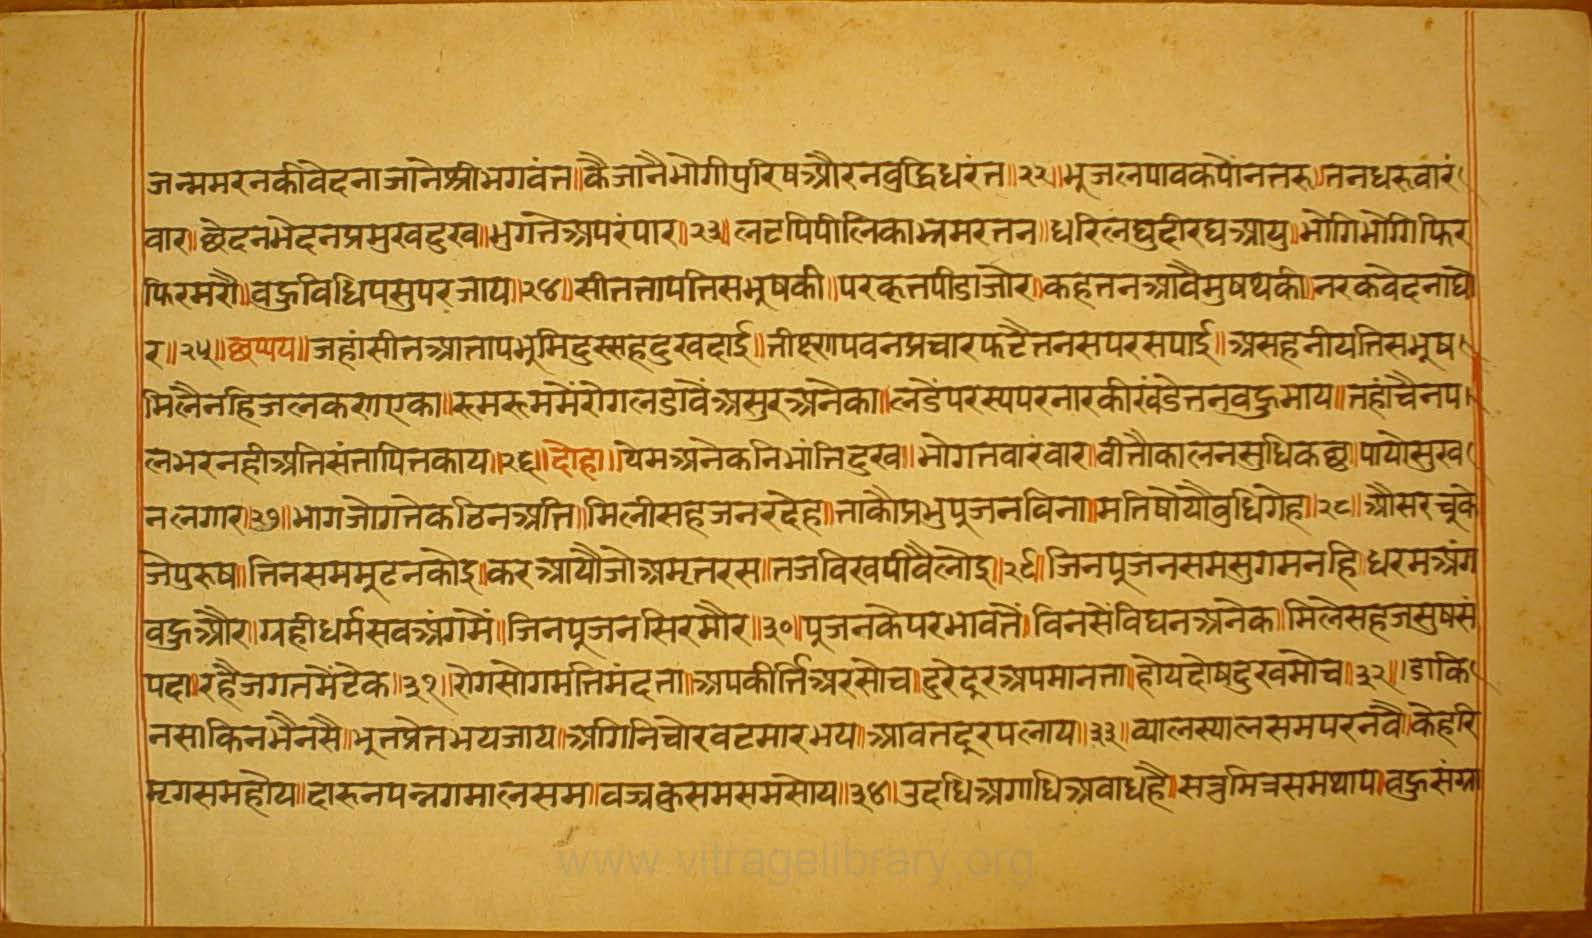 जन्ममरनकीवेदनाजानेश्रीभगवंत॥कैजानैभोगीपुरिषऔरनवुद्धिधरंत॥२२॥भूजलपावकपौंनतरु॥तनधरुवारं
वार॥छेदनभेदनप्रमुखदुख॥भुगतेअपरंपार॥२३॥लटपिपीलिकाभ्रमरतन॥धरिलघुदीरघआयु॥भोगिभोगिफिर
फिरमरौ॥वहुविधिपसुपरजाय॥२४॥सीततापतिसभूषकी॥परकृतपीडाजोर॥कहतनआवैमुषथकी॥नरकवेदनाघो
र॥२५॥छप्पय॥जहांसीतआतापभूमिदुस्सहदुखदाई॥तीक्ष्णपवनप्रचारफटैतनसपरसपाई॥असहनीयतिसभूष
मिलैनहिजलकणएका॥रूमरूममेंरोगलडावैंअसुरअनेका॥लडेंपरस्यपरनारकीखंडेतनवहुभाय॥तहांचैनप
लभरनहीअतिसंतापितकाय॥२६॥दोहा॥येमअनेकनिभांतिदुख॥भोगतवारंवार॥वीतौकालनसुधिकछु॥पायोसुख
नलगार॥२७॥भागजोगतेकठिनअति॥मिलीसहजनरदेह॥ताकौप्रभुपूजनविना॥मतिषोयौवुधिगेह॥२८॥औसरचूके
जेपुरूष॥तिनसममूढनकोइ॥करआयौजोअमृतरस॥तजविखपीवैलोइ॥२९॥जिनपूजनसमसुगमनहि॥धरमअंग
वहुऔर॥यहीधर्मसवअंगमैं॥जिनपूजनसिरमौर॥३०॥पूजनकेपरभावतैं॥विनसेंविघनअनेक॥मिलेसहजसुषसं
पदा॥रहैजगतमेंटेक॥३१॥रोगसोगमतिमंदता॥अपकीर्त्तिअरसोच॥दुरेदूरअपमानता॥होयदोषदुखमोच॥३२॥डाकि
नसाकिनभैनसै॥भूतप्रेतभयजाय॥अगिनिचोरवटमारभय॥आवतदूरपलाय॥३३॥व्यालस्यालसमपरनवै॥केहरि
मृगसमहोय॥दारुनपन्नगमालसम॥वज्रकुसमसमसोय॥३४॥उदधिअगाधिअवाधहै॥सत्रुमित्रसमथाप॥वहुसंग्रा
www.vitragelibrary.org